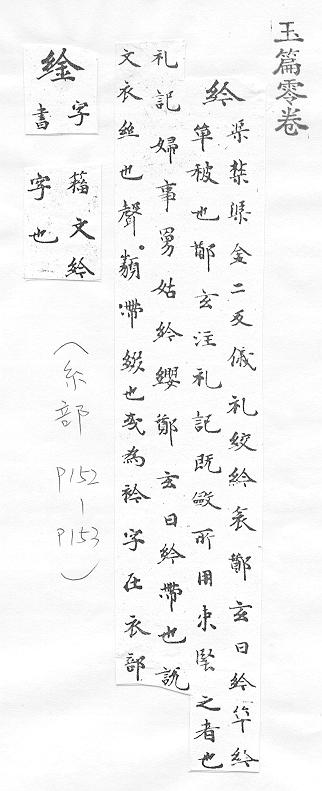 玉篇零卷
紟 渠禁渠金二反儀礼絞紟衾鄭玄曰紟單
單被也鄭玄注礼記既斂所用束堅之者也
礼記婦事舅姑紟纓鄭玄曰紟帶也說
文衣絲也聲類帶綴也或為衿字在衣部
䋮 字書
籕文紟字也
(糸部 P152-P153)